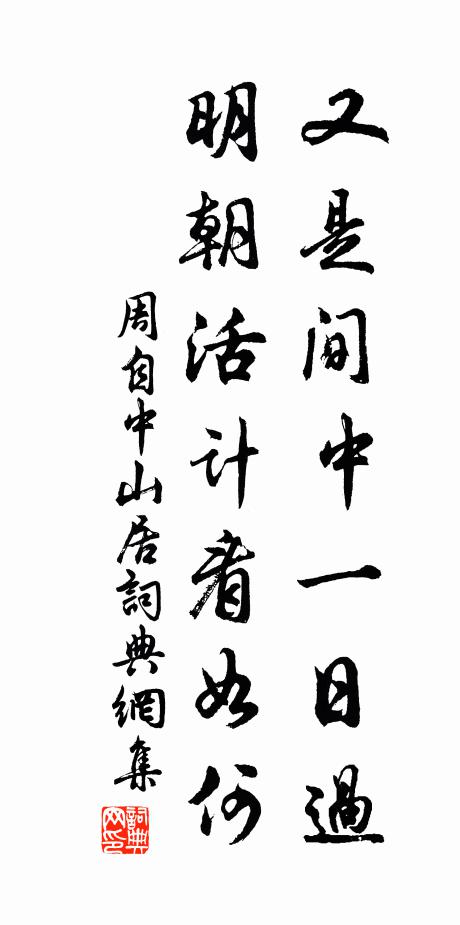 又是间中一日過
明朝活計看如何
周自中山居詞典網集
詞典网印